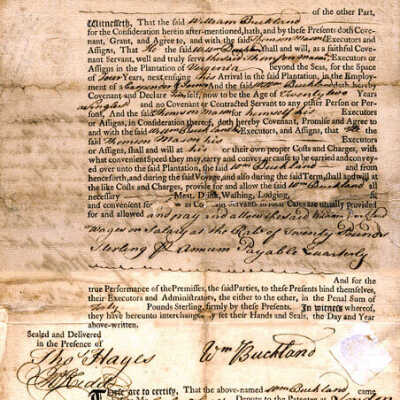 of the other Part,
Witnesseth, That the said William Buckland
for the Consideration herein after-mentioned, hath, and by these Presents doth Cove-
nant, Grant, and Agree to, and with the said Thomson Mason Executors and
Assigns, That He the said Wm Buckland shall and will, as a faithful Cove-
nant Servant, well and truly serve the said Thomson Mason Executors or
Assigns in the Plantation of Virginia beyond the Seas, for the Space
of Four Years, next ensuing his Arrival in the said Plantation, in the Employment
of a Carpenter & Joiner And the said Wm Buckland doth hereby
Covenant and Declare self, now to be the Age of Twenty two Years
and no Covenant or Contracted Servant to any other Person or Per-
sons, And the said Thomson Mason for himself his Executors
or Assigns, in Consideration thereof, doth hereby Covenant, Promise and Agree to
and with the said Wm Buckland his Executors, and Assigns, that He the
said Thomson Mason his Executors
or Assigns, shall and will at his or their own proper Costs and Charges, with
what convenient Speed they may, carry and convey, or cause to be carried and convey-
ed over unto the said Plantation, the said Wm Buckland and from
henceforth, and during the said Voyage, and also during the said Term, shall and will at
the like Costs and Charges, provide for and allow the said Wm Buckland all
necessary Meat, Drink, Washing, Lodging,
and convenient for as Covenant Servants in such Cases are usually provided
for and allowed and pay and allow the said William Buckland
Wages or Salary at the Rate of Twenty Pounds
Sterling P Annum Payable Quarterly
And for the
true Performance of the Premisses, the said Parties, to these Presents bind themselves,
their Executors and Administrators, the either to the other, in the Penal Sum of
Forty Pounds Sterling, firmly by these Presents. In witness whereof,
they have hereunto interchangeably set their Hands and Seals, the Day and Year
above-written.
Sealed and Delivered
in the Presence of
Tho Hayes
Wm Buckland
These are to certify, That the above-named Wm Buckland came
Deputy to the Patentee of London